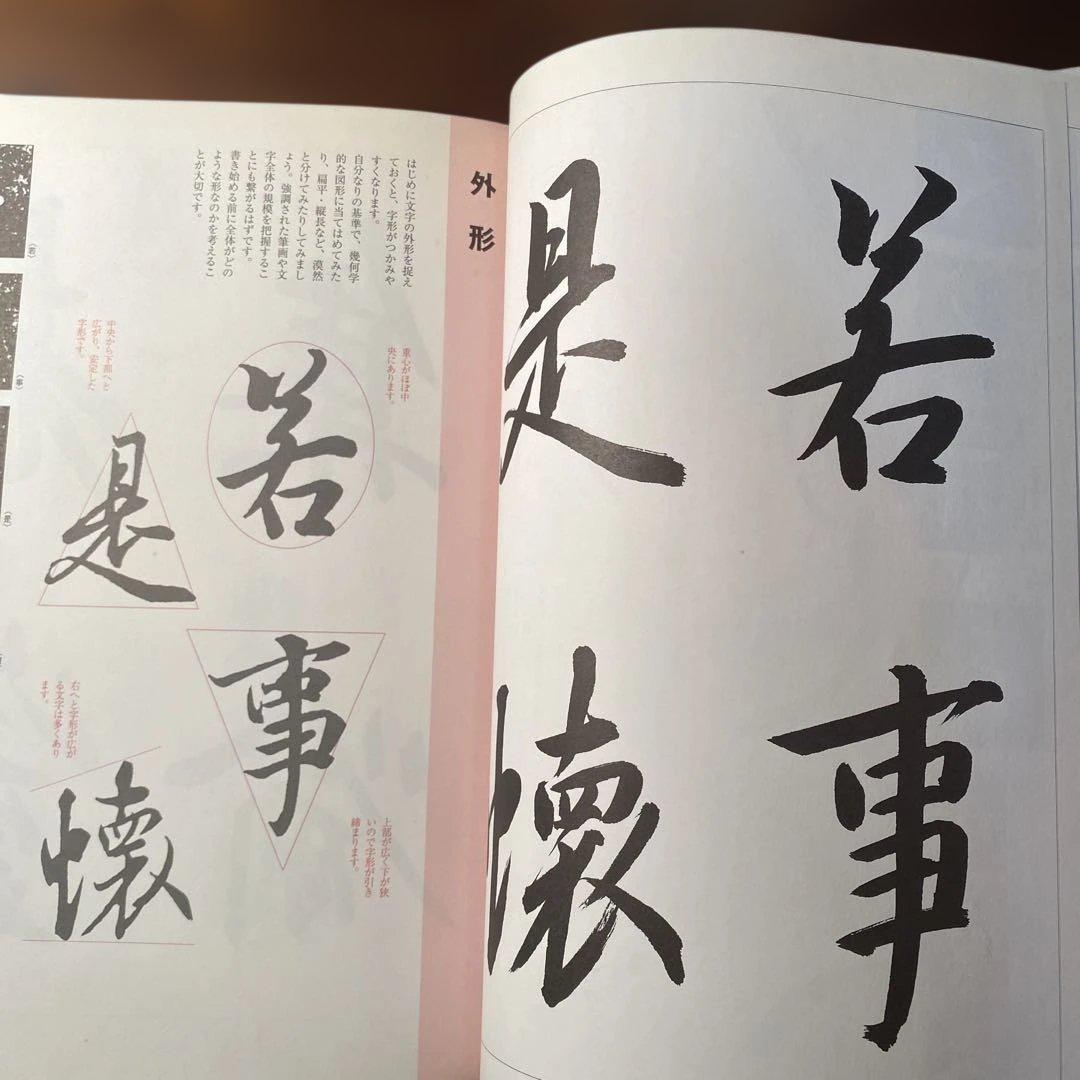 若
事
是
懐
外形
はじめに文字の外形を捉え
ておくと、字形がつかみや
すくなります。
自分なりの基準で、幾何学
的な図形に当てはめてみた
り、扁平・縦長など、漠然
と分けてみたりしてみまし
ょう。強調された筆画や文
字全体の規模を把握するこ
とにも繋がるはずです。
書き始める前に全体がどの
ような形なのかを考えるこ
とが大切です。
重心がほぼ中
央にあります。
若
上部が広く下が狭
いので字形が引き
締まります。
事
中央から下部へと
広がり、安定した
字形です。
是
右へと字形が広が
る文字は多くあり
ます。
懐
（若）
（事）
（是）